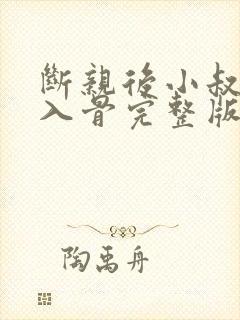 斷親後小叔
入骨完整版
陶禹舟